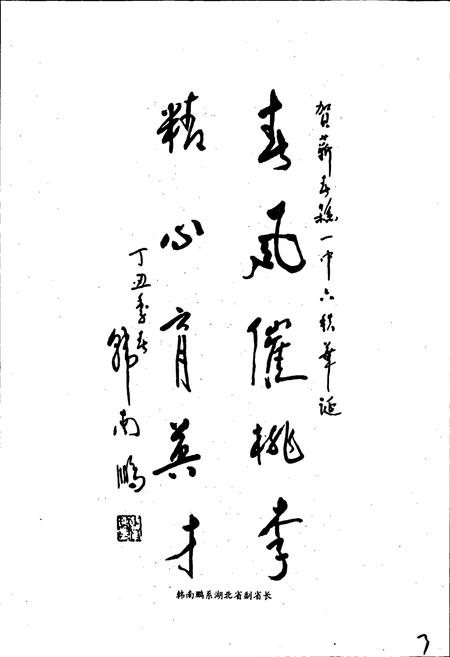 贺蕲春县一中六秩华诞
春风催桃李
精心育英才
丁丑季春
韩南鹏
韩南鹏系湖北省副省长